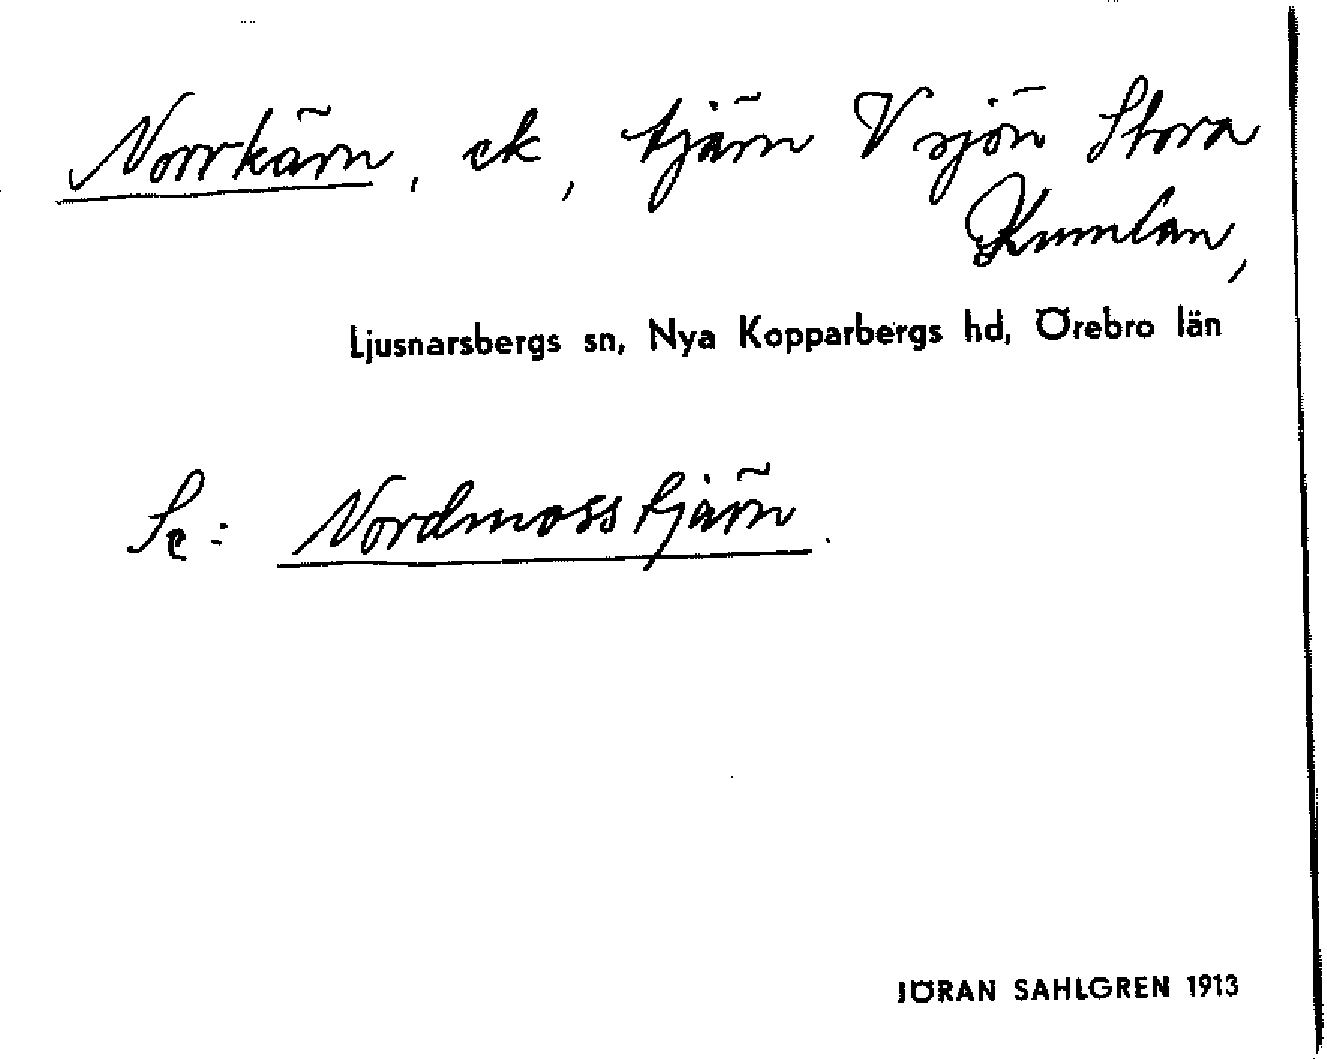 Norrkärn, ek, tjärn V sjön Stora
Kumlan,
Ljusnarsbergs sn, Nya Kopparbergs hd, Örebro län
Se: Nordmosstjärn.
JÖRAN SAHLGREN 1913